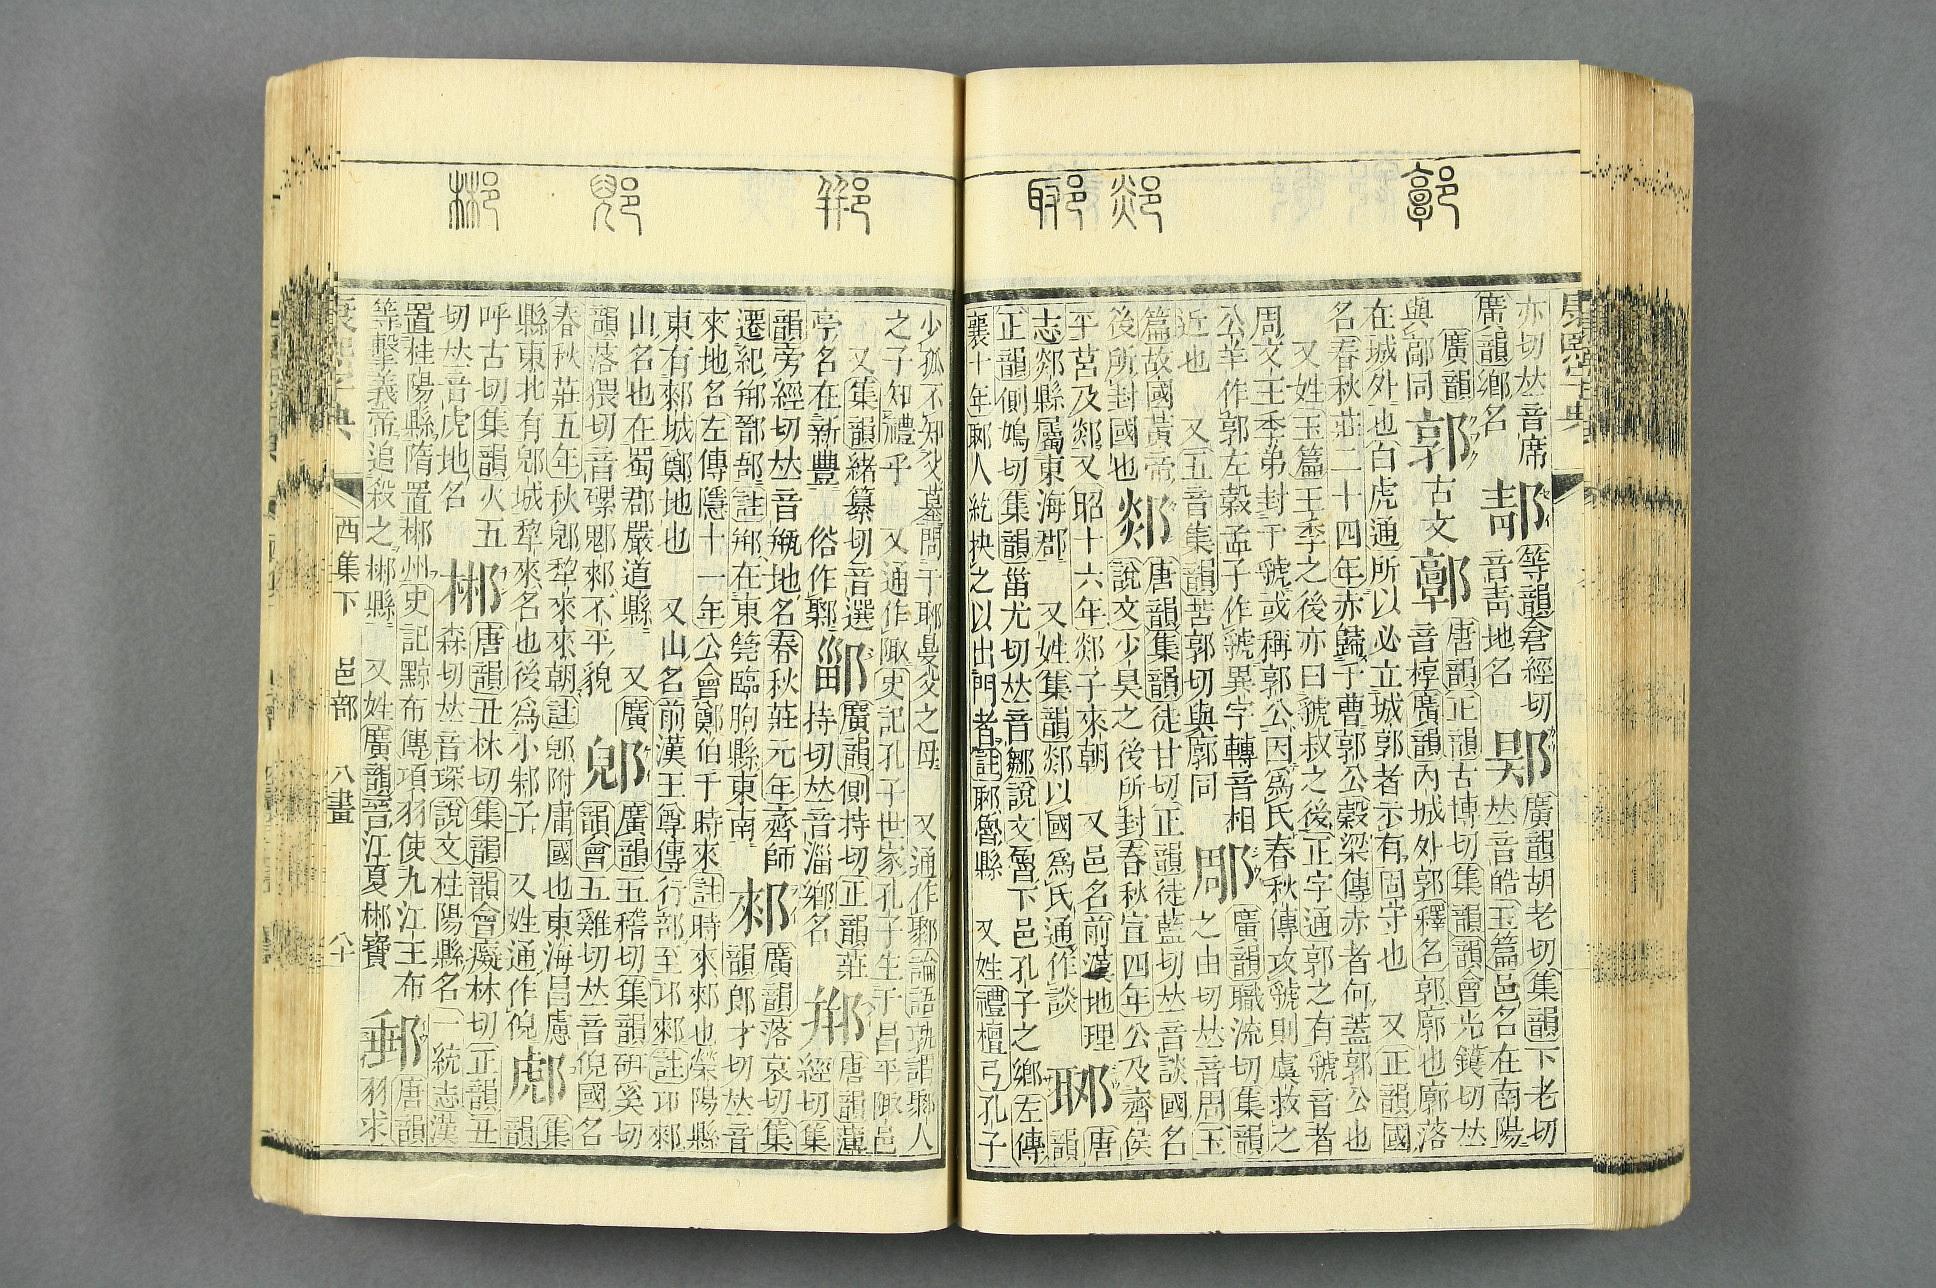 郭
郯
郰
亦切𠀤音席
廣韻鄉名
郬
等韻倉經切
音靑地名
廣韻胡老切集韻下老切
𠀤音皓玉篇邑名在南陽
廣韻
與鄗同
郭
古文
唐韻正韻古博切集韻韻會光鑊切𠀤
音椁廣韻內城外郭釋名郭廓也廓落
在城外也白虎通所以必立城郭者示有固守也 又正韻國
名春秋莊二十四年赤歸于曹郭公穀梁傳赤者何蓋郭公也
又姓玉篇王季之後亦曰虢叔之後正字通郭之有虢音者
周文王季弟封于虢或稱郭公因爲氏春秋傳攻虢則虞救之
公羊作郭左穀孟子作虢異字轉音相
近也 又五音集韻苦郭切與廓同
郮
廣韻職流切集韻
之由切𠀤音周玉
篇故國黃帝
後所封國也
郯
唐韻集韻徒甘切正韻徒藍切𠀤音談國名
說文少昊之後所封春秋宣四年公及齊侯
平莒及郯又昭十六年郯子來朝 又邑名前漢地理
志郯縣屬東海郡 又姓集韻郯以國爲氏通作談
郰
唐
韻
正韻側鳩切集韻甾尤切𠀤音鄒說文魯下邑孔子之鄉左傳
襄十年郰人紇抉之以出門者註郰魯縣 又姓禮檀弓孔子
郱
郳
郴
少孤不知父墓問于郰曼父之母 又通作鄹論語孰謂鄹人
之子知禮乎 又通作陬史記孔子世家孔子生于昌平陬邑
又集韻緒纂切音選
亭名在新豐 俗作鄹
鄑
廣韻側持切正韻莊
持切𠀤音淄鄉名
郱
唐韻薄
經切集
韻旁經切𠀤音甁地名春秋莊元年齊師
遷紀郱鄑郚註郱在東莞臨朐縣東南
郲
廣韻落哀切集
韻郎才切𠀤音
來地名左傳隱十一年公會鄭伯于時來註時來郲也滎陽縣
東有郲城鄭地也 又山名前漢王尊傳行部至邛郲註邛郲
山名也在蜀郡嚴道縣 又廣
韻落猥切音磥䣀郲不平貌
郳
廣韻五稽切集韻硏奚切
韻會五雞切𠀤音倪國名
春秋莊五年秋郳犂來來朝註郳附庸國也東海昌慮
縣東北有郳城犂來名也後爲小邾子 又姓通作倪
集
韻
呼古切集韻火五
切𠀤音虎地名
郴
唐韻丑林切集韻韻會癡林切正韻丑
森切𠀤音琛說文桂陽縣名一統志漢
置桂陽縣隋置郴州史記黥布傳項羽使九江王布
等擊義帝追殺之郴縣 又姓廣韻晉江夏郴寶
郵
唐韻
羽求
康熙字典
酉集下
邑部
八畫
八十